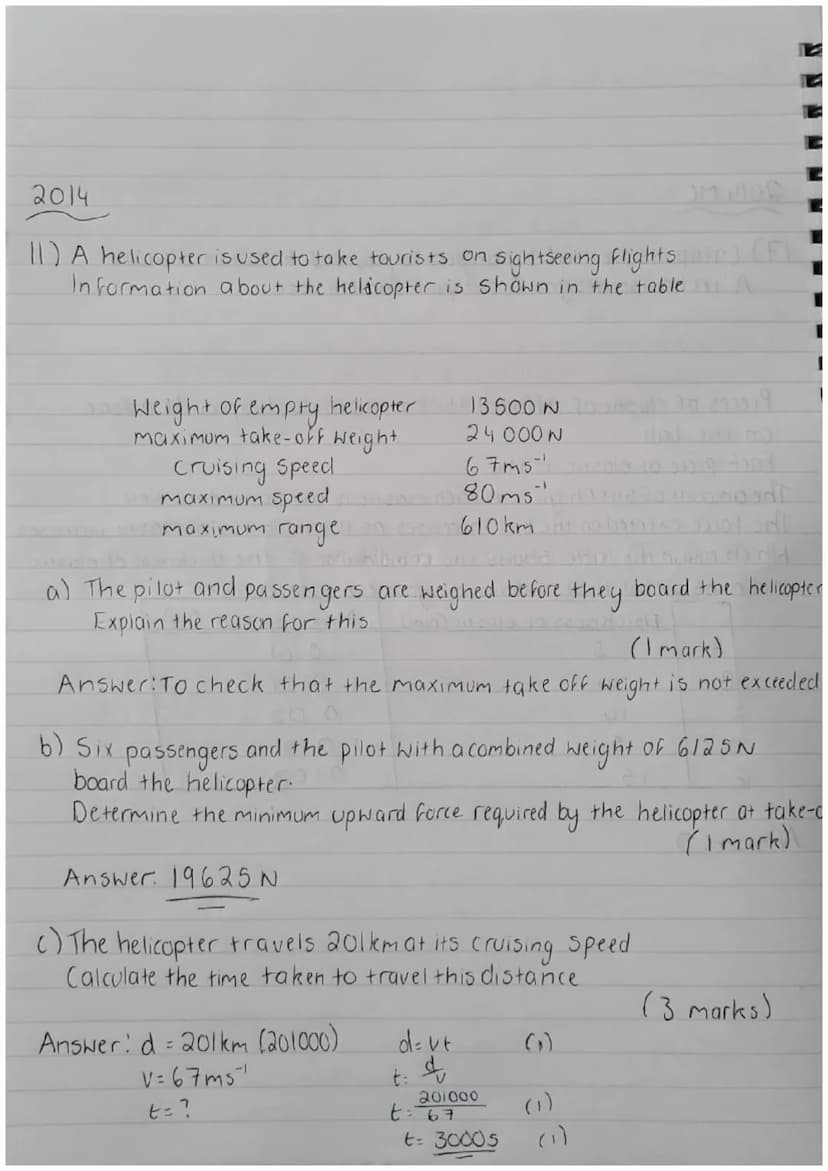 2014
11) A helicopter is used to take tourists on sightseeing flights
Information about the helicopter is shown in the table
Weight of empty helicopter 13500 N
maximum take-off weight 24 000 N
cruising speed 67ms⁻¹
maximum speed 80ms⁻¹
maximum range 610km
a) The pilot and passengers are weighed before they board the helicopter
Explain the reason for this
(1 mark)
Answer: To check that the maximum take off weight is not exceeded
b) Six passengers and the pilot with a combined weight of 6125N
board the helicopter.
Determine the minimum upward force required by the helicopter at take-o
(1 mark)
Answer. 19625 N
c) The helicopter travels 201km at its cruising speed
Calculate the time taken to travel this distance
(3 marks)
Answer: d = 201km (201000) d=vt (1)
v=67ms⁻¹ t= d/v
t=? t= 201000/67 (1)
t= 3000s (1)